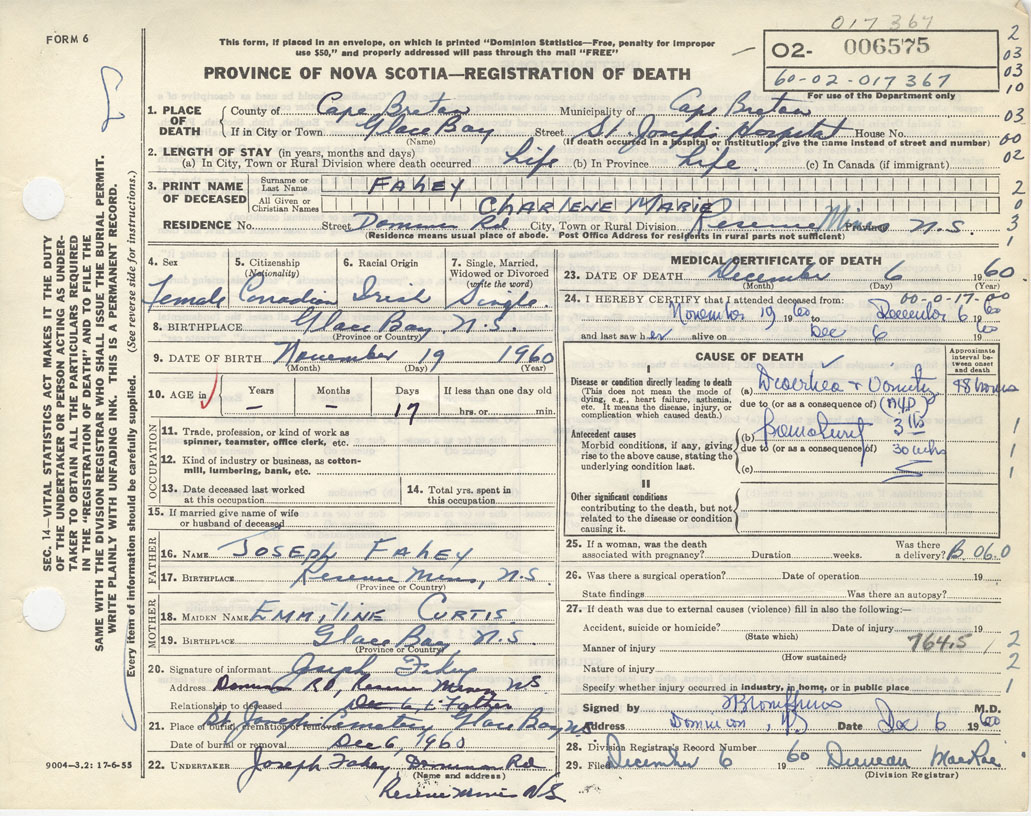 017 367
FORM 6
This form, if placed in an envelope, on which is printed "Dominion Statistics—Free, penalty for improper
use $50," and properly addressed will pass through the mail "FREE"
O2- 006575
60-02-017367
For use of the Department only
PROVINCE OF NOVA SCOTIA—REGISTRATION OF DEATH
1. PLACE OF DEATH
County of Cape Breton Municipality of Cape Breton
If in City or Town Glace Bay Street St. Joseph's Hospital House No.
(Name) (If death occurred in a hospital or institution, give the name instead of street and number)
2. LENGTH OF STAY (in years, months and days)
(a) In City, Town or Rural Division where death occurred Life (b) In Province Life (c) In Canada (if immigrant)
3. PRINT NAME OF DECEASED
Surname or Last Name FAHEY
All Given or Christian Names CHARLENE MARIE
RESIDENCE No. Street Dominion Rd City, Town or Rural Division Reserve Mines Province N.S.
(Residence means usual place of abode. Post Office Address for residents in rural parts not sufficient)
4. Sex Female
5. Citizenship (Nationality) Canadian
6. Racial Origin Irish
7. Single, Married, Widowed or Divorced (write the word) Single
8. BIRTHPLACE Glace Bay, N.S.
(Province or Country)
9. DATE OF BIRTH November 19 1960
(Month) (Day) (Year)
10. AGE in Years – Months – Days 17 If less than one day old hrs. or min.
OCCUPATION
11. Trade, profession or kind of work as
spinner, teamster, office clerk, etc.
12. Kind of industry or business, as cotton-
mill, lumbering, bank, etc.
13. Date deceased last worked
at this occupation
14. Total yrs. spent in
this occupation
15. If married give name of wife
or husband of deceased
FATHER
16. NAME JOSEPH FAHEY
17. BIRTHPLACE Reserve Mines, N.S.
(Province or Country)
MOTHER
18. MAIDEN NAME EMMILINE CURTIS
19. BIRTHPLACE Glace Bay, N.S
(Province or Country)
20. Signature of informant Joseph Fahey
Address Dominion RD, Reserve Mines NS
Relationship to deceased Father
21. Place of burial, cremation or removal St. Josephs Cemetery Glace Bay NS
Date of burial or removal Dec 6, 1960
22. UNDERTAKER Joseph Fahey Dominion Rd
(Name and address)
Reserve Mines N.S.
MEDICAL CERTIFICATE OF DEATH
23. DATE OF DEATH December 6 1960
(Month) (Day) (Year)
24. I HEREBY CERTIFY that I attended deceased from: 00-0-17-00
November 19 1960 to December 6 1960
and last saw her alive on Dec 6 1960
CAUSE OF DEATH
Approximate interval between onset and death
I
Disease or condition directly leading to death
(This does not mean the mode of
dying, e.g., heart failure, asthenia,
etc. It means the disease, injury, or
complication which caused death.)
(a) Diarrhea & Vomiting 48 hours
due to (or as a consequence of)
Antecedent causes
Morbid conditions, if any, giving
rise to the above cause, stating the
underlying condition last.
(b) Prematurity 3 lbs
due to (or as a consequence of) 30 wks
(c)
II
Other significant conditions
contributing to the death, but not
related to the disease or condition
causing it.
25. If a woman, was the death
associated with pregnancy? Duration weeks. Was there a delivery? B 06.0
26. Was there a surgical operation? Date of operation 19
State findings Was there an autopsy?
27. If death was due to external causes (violence) fill in also the following:—
Accident, suicide or homicide? Date of injury 19
(State which)
764.5
Manner of injury
(How sustained)
Nature of injury
Specify whether injury occurred in industry, in home, or in public place
Signed by M.D.
Address Dominion, NS Date Dec 6 1960
28. Division Registrar's Record Number
29. Filed December 6 1960 Duncan MacRae
(Division Registrar)
SEC. 14—VITAL STATISTICS ACT MAKES IT THE DUTY
OF THE UNDERTAKER OR PERSON ACTING AS UNDER-
TAKER TO OBTAIN ALL THE PARTICULARS REQUIRED
IN THE "REGISTRATION OF DEATH" AND TO FILE THE
SAME WITH THE DIVISION REGISTRAR WHO SHALL ISSUE THE BURIAL PERMIT.
WRITE PLAINLY WITH UNFADING INK. THIS IS A PERMANENT RECORD.
Every item of information should be carefully supplied. (See reverse side for instructions.)
9004—3.2: 17-6-55
2
03
03
10
03
00
02
2
0
3
1
1
1
1
2
2
1